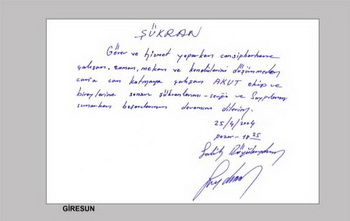 ŞÜKRAN
Görev ve hizmet yaparken cansiperhane
çalışan, zaman, mekan ve kendilerini düşünmeden
cana can katmaya çalışan AKUT ekip ve
bireylerine sonsuz şükranlarımı sevgi ve Saygılarımı
sunarken başarılarının devamını dilerim.
25/4/2004
pazar - 18 35
Salih
GİRESUN